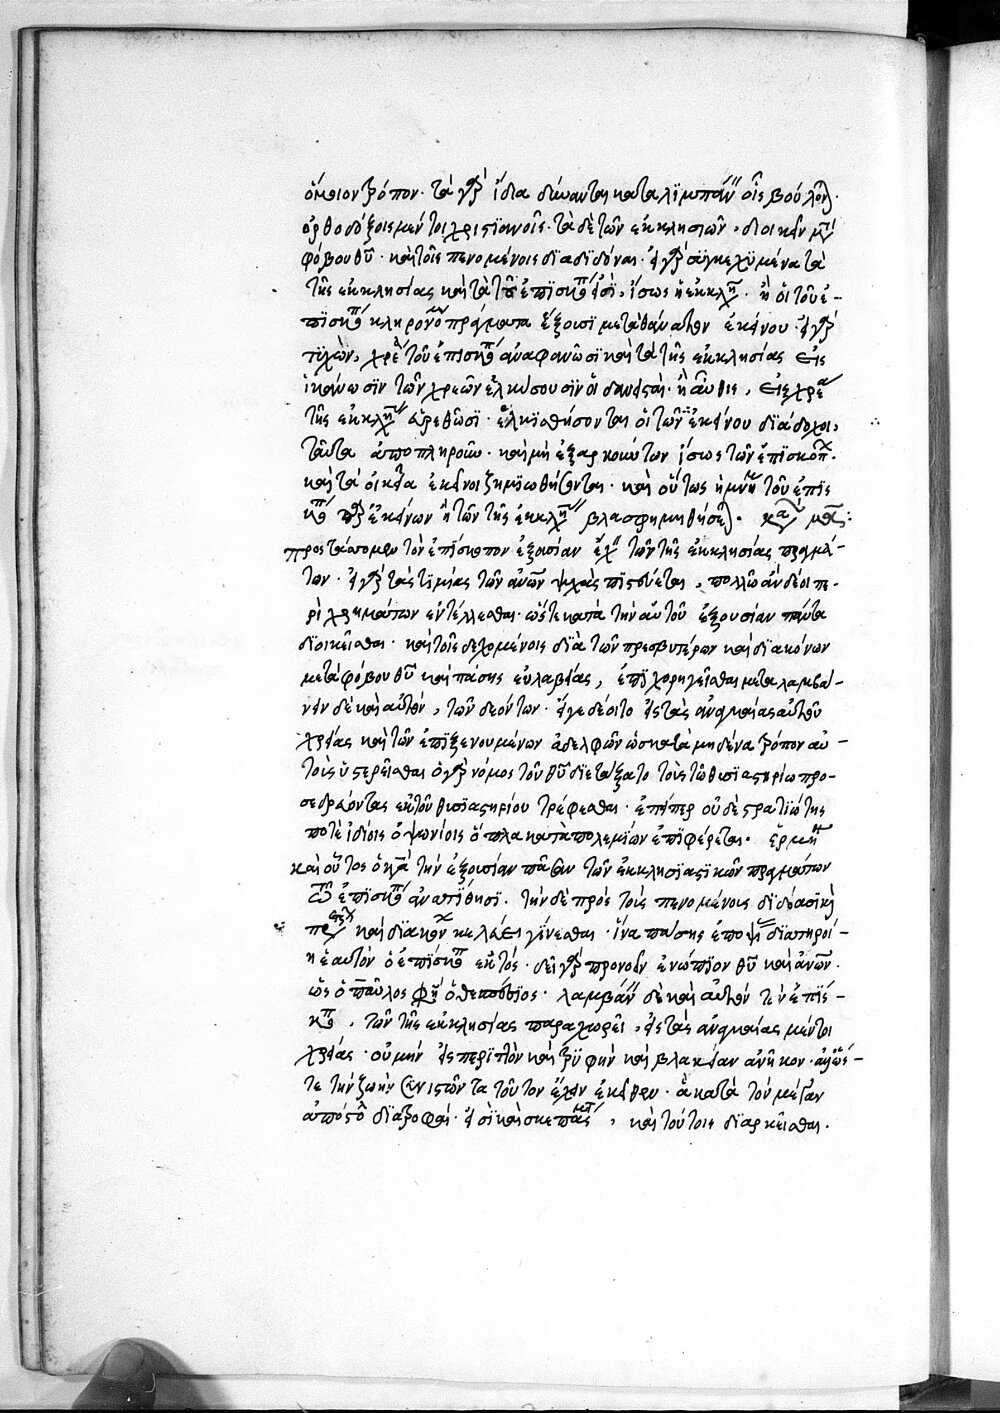 ὅμοιον τρόπον· τὰ γὰρ ἴδια δύνανται καταλιμπάνειν οἷς βούλονται·
ὀρθοδόξοις μέντοι χριστιανοῖς· τὰ δὲ τῶν ἐκκλησιῶν, διοικεῖν μετὰ
φόβου θῦ· καὶ τοῖς πενομένοις διαδιδόναι· εἰ γὰρ συγκεχυμένα τὰ
τῆς ἐκκλησίας καὶ τὰ τοῦ ἐπισκόπου εἰσὶ, ἴσως ἡ ἐκκλησία· ἢ οἱ τοῦ ἐ-
πισκόπου κληρονόμοι πράγματα ἕξουσι μετὰ θάνατον ἐκείνου· εἰ γὰρ
τυχὸν, χρέη τοῦ ἐπισκόπου ἀναφανῶσι καὶ τὰ τῆς ἐκκλησίας εἰς
ἱκάνωσιν τῶν χρεῶν ἑλκύσουσιν οἱ δανεισταί· ἢ αὖθις, εἰς χρέα
τῆς ἐκκλησίας εὑρεθῶσι· ἑλκυσθήσονται οἱ τῶν ἐκείνου διάδοχοι,
ταῦτα ἀποπληροῦν· καὶ μὴ ἐξαρκούντων ἴσως τῶν ἐπισκόπου·
καὶ τὰ οἰκεῖα ἐκεῖνοι ζημιωθήσονται· καὶ οὕτως ἡ μνήμη τοῦ ἐπισ
κόπου παρ' ἐκείνων ἢ τῶν τῆς ἐκκλησίας βλασφημηθήσεται· κανὼν μα:
προστάσσομεν τὸν ἐπίσκοπον ἐξουσίαν ἔχειν τῶν τῆς ἐκκλησίας πραγμά-
των· εἰ γὰρ τὰς τιμίας τῶν ἀνων ψυχὰς πιστεύεται, πολλῶ ἂν δέοι πε-
ρὶ χρημάτων ἐντέλλεσθαι· ὥστε κατὰ τὴν αὐτοῦ ἐξουσίαν πάντα
διοικεῖσθαι· καὶ τοῖς δεχομένοις διὰ τῶν πρεσβυτέρων καὶ διακόνων
μετὰ φόβου θῦ καὶ πάσης εὐλαβείας, ἐπιχορηγεῖσθαι μεταλαμβά-
νειν δὲ καὶ αὐτὸν, τῶν δεόντων· εἴγε δέοιτο εἰς τὰς ἀναγκαίας αὐτοῦ
χρείας καὶ τῶν ἐπιξενουμένων ἀδελφῶν ὡς κατὰ μηδένα τρόπον αὐ-
τοὺς ὑστερεῖσθαι ὁ γὰρ νόμος τοῦ θῦ διετάξατο τοὺς τῶ θυσιαστηρίω προ-
σεδρεύοντας ἐκ τοῦ θυσιαστηρίου τρέφεσθαι· ἐπείπερ οὐδὲ στρατιώτης
ποτὲ ἰδίοις ὀψωνίοις ὅπλα κατὰ πολεμίων ἐπιφέρεται·
καὶ οὗτος ὁ κανὼν τὴν ἐξουσίαν πᾶσαν τῶν ἐκκλησιαστικῶν πραγμάτων
τῶ ἐπισκόπω ἀνατίθησι· τὴν δὲ πρὸς τοὺς πενομένους διάδοσιν
καὶ διακόνων κελεύει γίνεσθαι· ἵνα πάσης ὑποψίας διατηροί-
η ἑαυτὸν ὁ ἐπίσκοπος ἐκτός· δεῖ γὰρ προνοεῖν ἐνώπιον θῦ καὶ ἀνων·
ὡς ὁ παῦλος φησὶ ὁ θεσπέσιος· λαμβάνειν δὲ καὶ αὐτὸν τὸν ἐπίσ-
κοπον, τῶν τῆς ἐκκλησίας παραχωρεῖ, εἰς τὰς ἀναγκαίας μέντοι
χρείας· οὐ μὴν εἰς περιττὸν καὶ τρυφὴν καὶ βλακείαν ἀνῆκον·
τε τὴν ζωὴν συνιστῶντα τοῦτον ἕλκειν ἐκεῖθεν· ἃ κατὰ τὸν μέγαν
ἀπόστολον διατροφαί· εἰσὶ καὶ σκεπάσματα, καὶ τούτοις διαρκεῖσθαι·